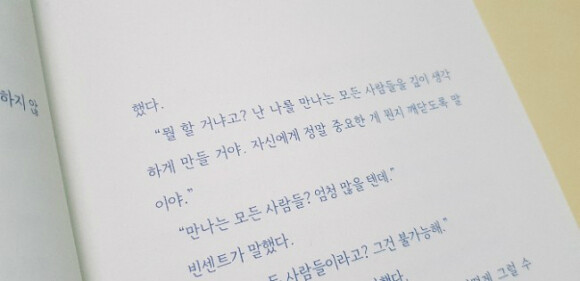 하지 않
했다.
“뭘 할 거냐고? 난 나를 만나는 모든 사람들을 깊이 생각
하게 만들 거야. 자신에게 정말 중요한 게 뭔지 깨닫도록 말
이야.”
“만나는 모든 사람들? 엄청 많을 텐데.”
빈센트가 말했다.
든 사람들이라고? 그건 불가능해.”
했다.
그럴 수